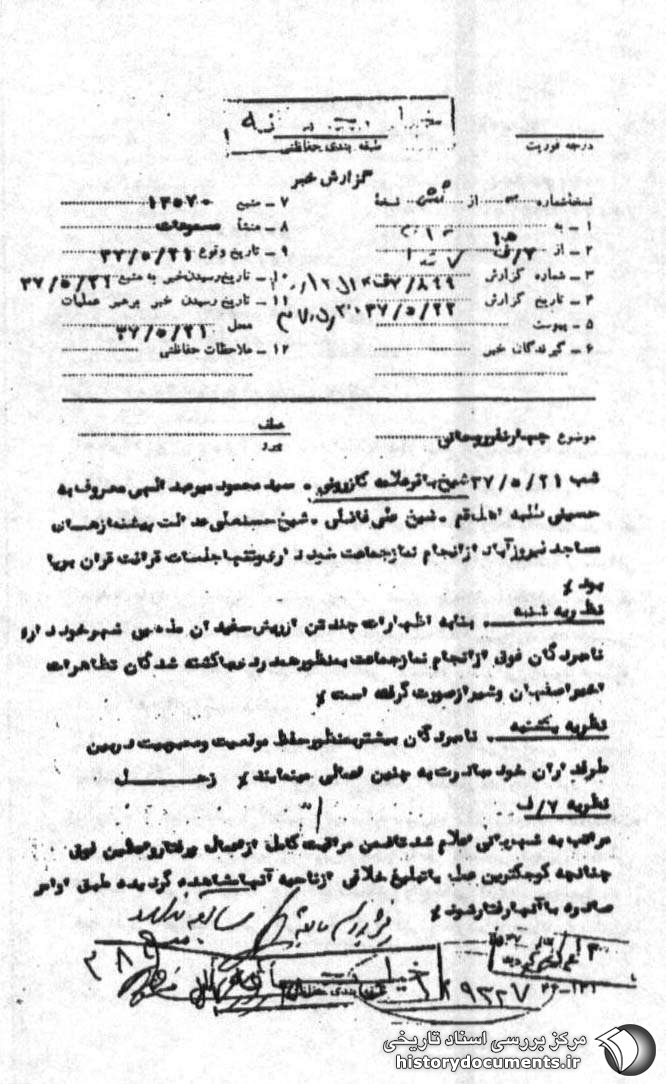 خیلی محرمانه
طبقه بندی حفاظتی
درجه فوریت
گزارش خبر
نسخه شماره از نسخه
۱ ـ به
۲ ـ از ۷/ف
۳ ـ شماره گزارش ۷/۸۴۹ف
۴ ـ تاریخ گزارش ۳۷/۵/۲۲
۵ ـ پیوست
۶ ـ گیرندگان خبر
۷ ـ منبع ۱۳۵۷۰
۸ ـ منشأ مسموعات
۹ ـ تاریخ وقوع ۳۷/۵/۲۱
۱۰ ـ تاریخ رسیدن خبر به منبع ۳۷/۵/۲۱
۱۱ ـ تاریخ رسیدن خبر برهبر عملیات
محل ۳۷/۵/۲۱
۱۲ ـ ملاحظات حفاظتی
موضوع چهار نفر روحانی
عطف
پیرو
شب ۳۷/۵/۲۱ شیخ باقر علامه کازرونی ـ سید محمود میرعبدالهی معروف به
حسینی طلبه اهل قم ـ شیخ علی فاضلی ـ شیخ حسنعلی عدالت پیشنمازهای
مساجد فیروزآباد از انجام نماز جماعت خودداری و تنها جلسات قرائت قران برپا
بود
نظریه شنبه ـ بنا به اظهارات چند تن از ریش سفیدان مذهبی شهر خودداری
نامبردگان فوق از انجام نماز جماعت بمنظور همدردی با کشته شدگان تظاهرات
اخیر اصفهان و شیراز صورت گرفته است
نظریه یکشنبه ـ نامبردگان بیشتر بمنظور حفظ موقعیت و محبوبیت در بین
طرفداران خود مبادرت به چنین اعمالی مینمایند
نظریه ۷/ف
مراتب به شهربانی اعلام شد تا ضمن مراقبت کامل از اعمال و رفتار واعظین فوق
چنانچه کوچکترین عمل یا تبلیغ خلافی از ناحیه آنها مشاهده گردیده طبق اوامر
صادره با آنها رفتار شود
خیلی
طبقه بندی حفاظتی
مرکز بررسی اسناد تاریخی
historydocuments.ir